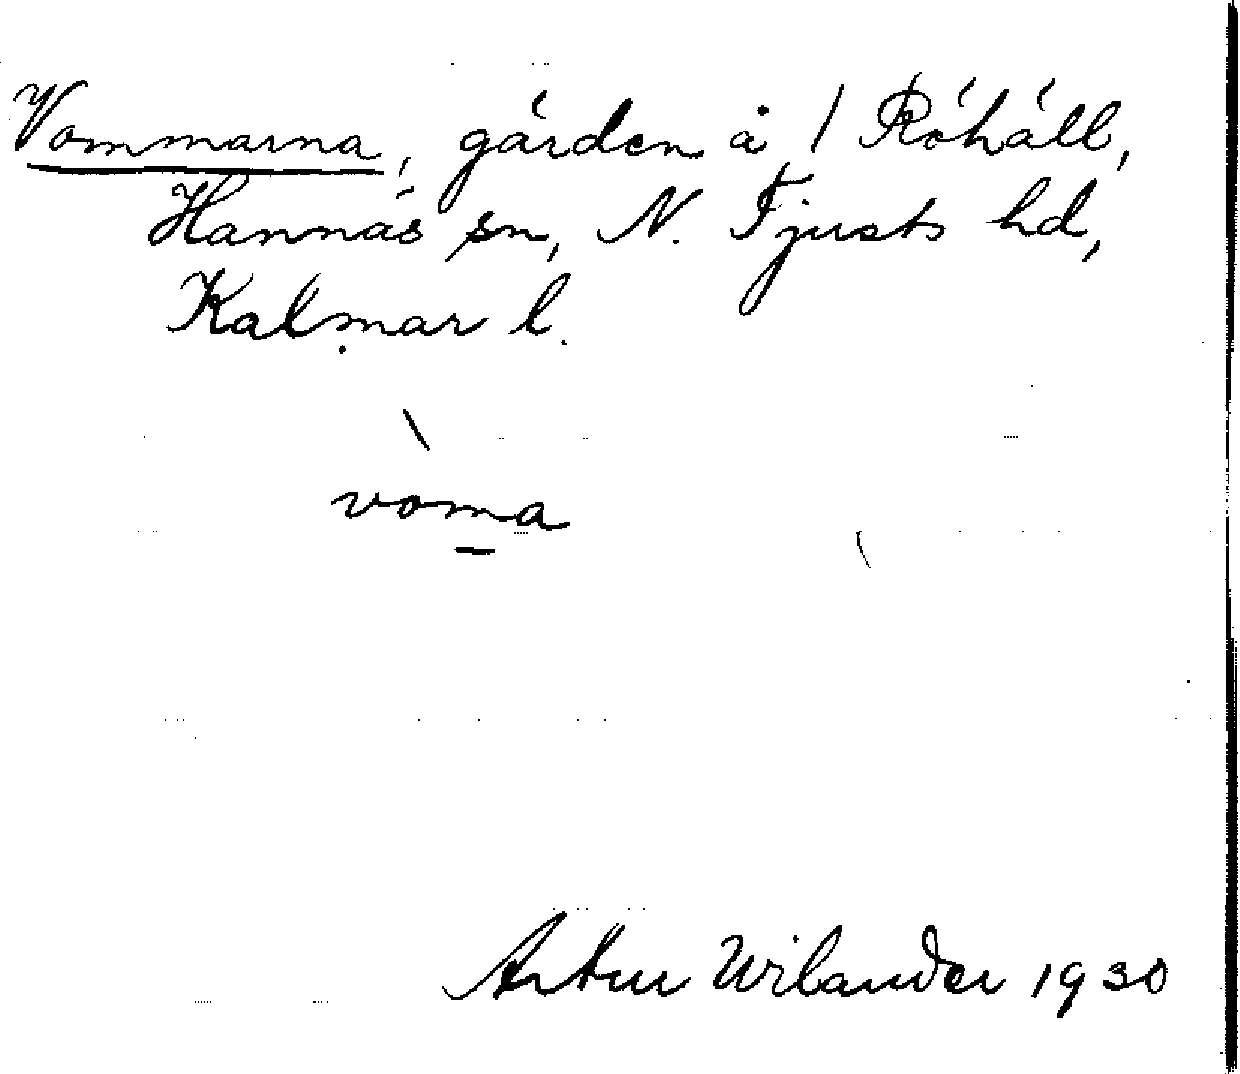 Vommarna, gården å 1 Röhäll,
Hannäs sn, N. Tjusts hd,
Kalmar l.
vòma
Artur Wilander 1930